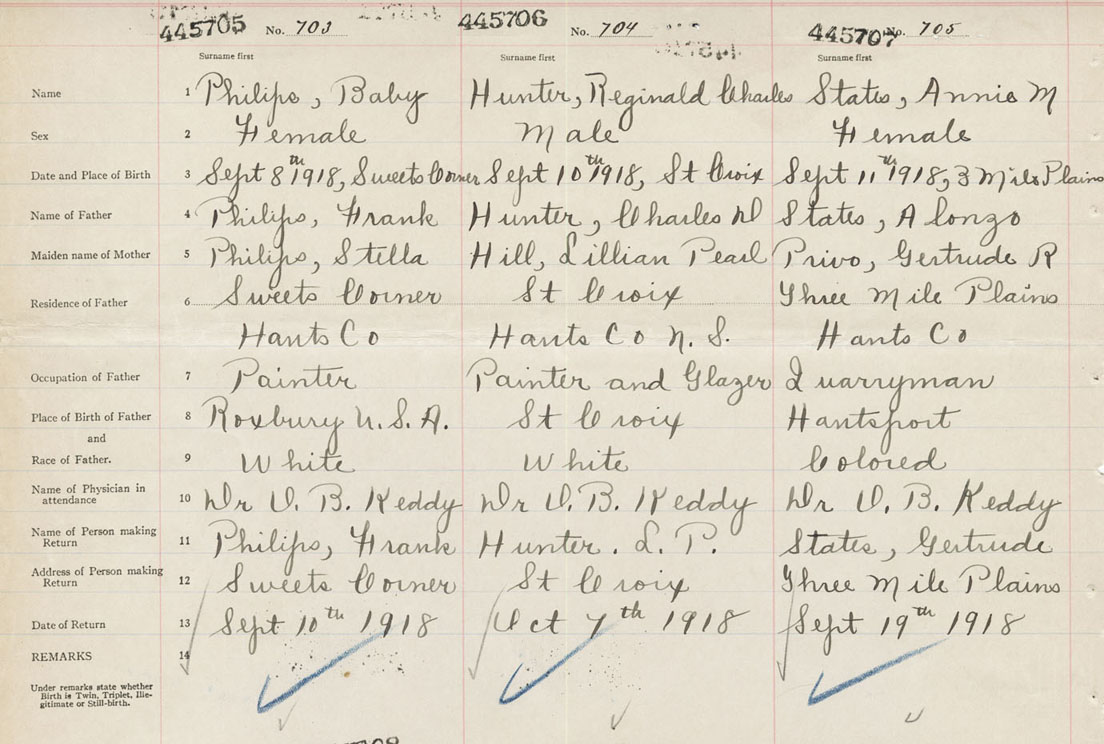 445705 No. 703 445706 No. 704 445707 No. 705
Surname first Surname first Surname first
Name 1 Philips, Baby Hunter, Reginald Charles States, Annie M
Sex 2 Female Male Female
Date and Place of Birth 3 Sept 8th 1918, Sweets Corner Sept 10th 1918, St Croix Sept 11th 1918, 3 Mile Plains
Name of Father 4 Philips, Frank Hunter, Charles W States, Alonzo
Maiden name of Mother 5 Philips, Stella Hill, Lillian Pearl Privo, Gertrude R
Residence of Father 6 Sweets Corner St Croix Three Mile Plains
Hants Co Hants Co N. S. Hants Co
Occupation of Father 7 Painter Painter and Glazer Quarryman
Place of Birth of Father 8 Roxbury U. S. A. St Croix Hantsport
and
Race of Father. 9 White White Colored
Name of Physician in
attendance 10 Dr O. B. Keddy Dr O. B. Keddy Dr O. B. Keddy
Name of Person making
Return 11 Philips, Frank Hunter. L. P. States, Gertrude
Address of Person making
Return 12 Sweets Corner St Croix Three Mile Plains
Date of Return 13 Sept 10th 1918 Oct 7th 1918 Sept 19th 1918
REMARKS 14
Under remarks state whether
Birth is Twin, Triplet, Ille-
gitimate or Still-birth.